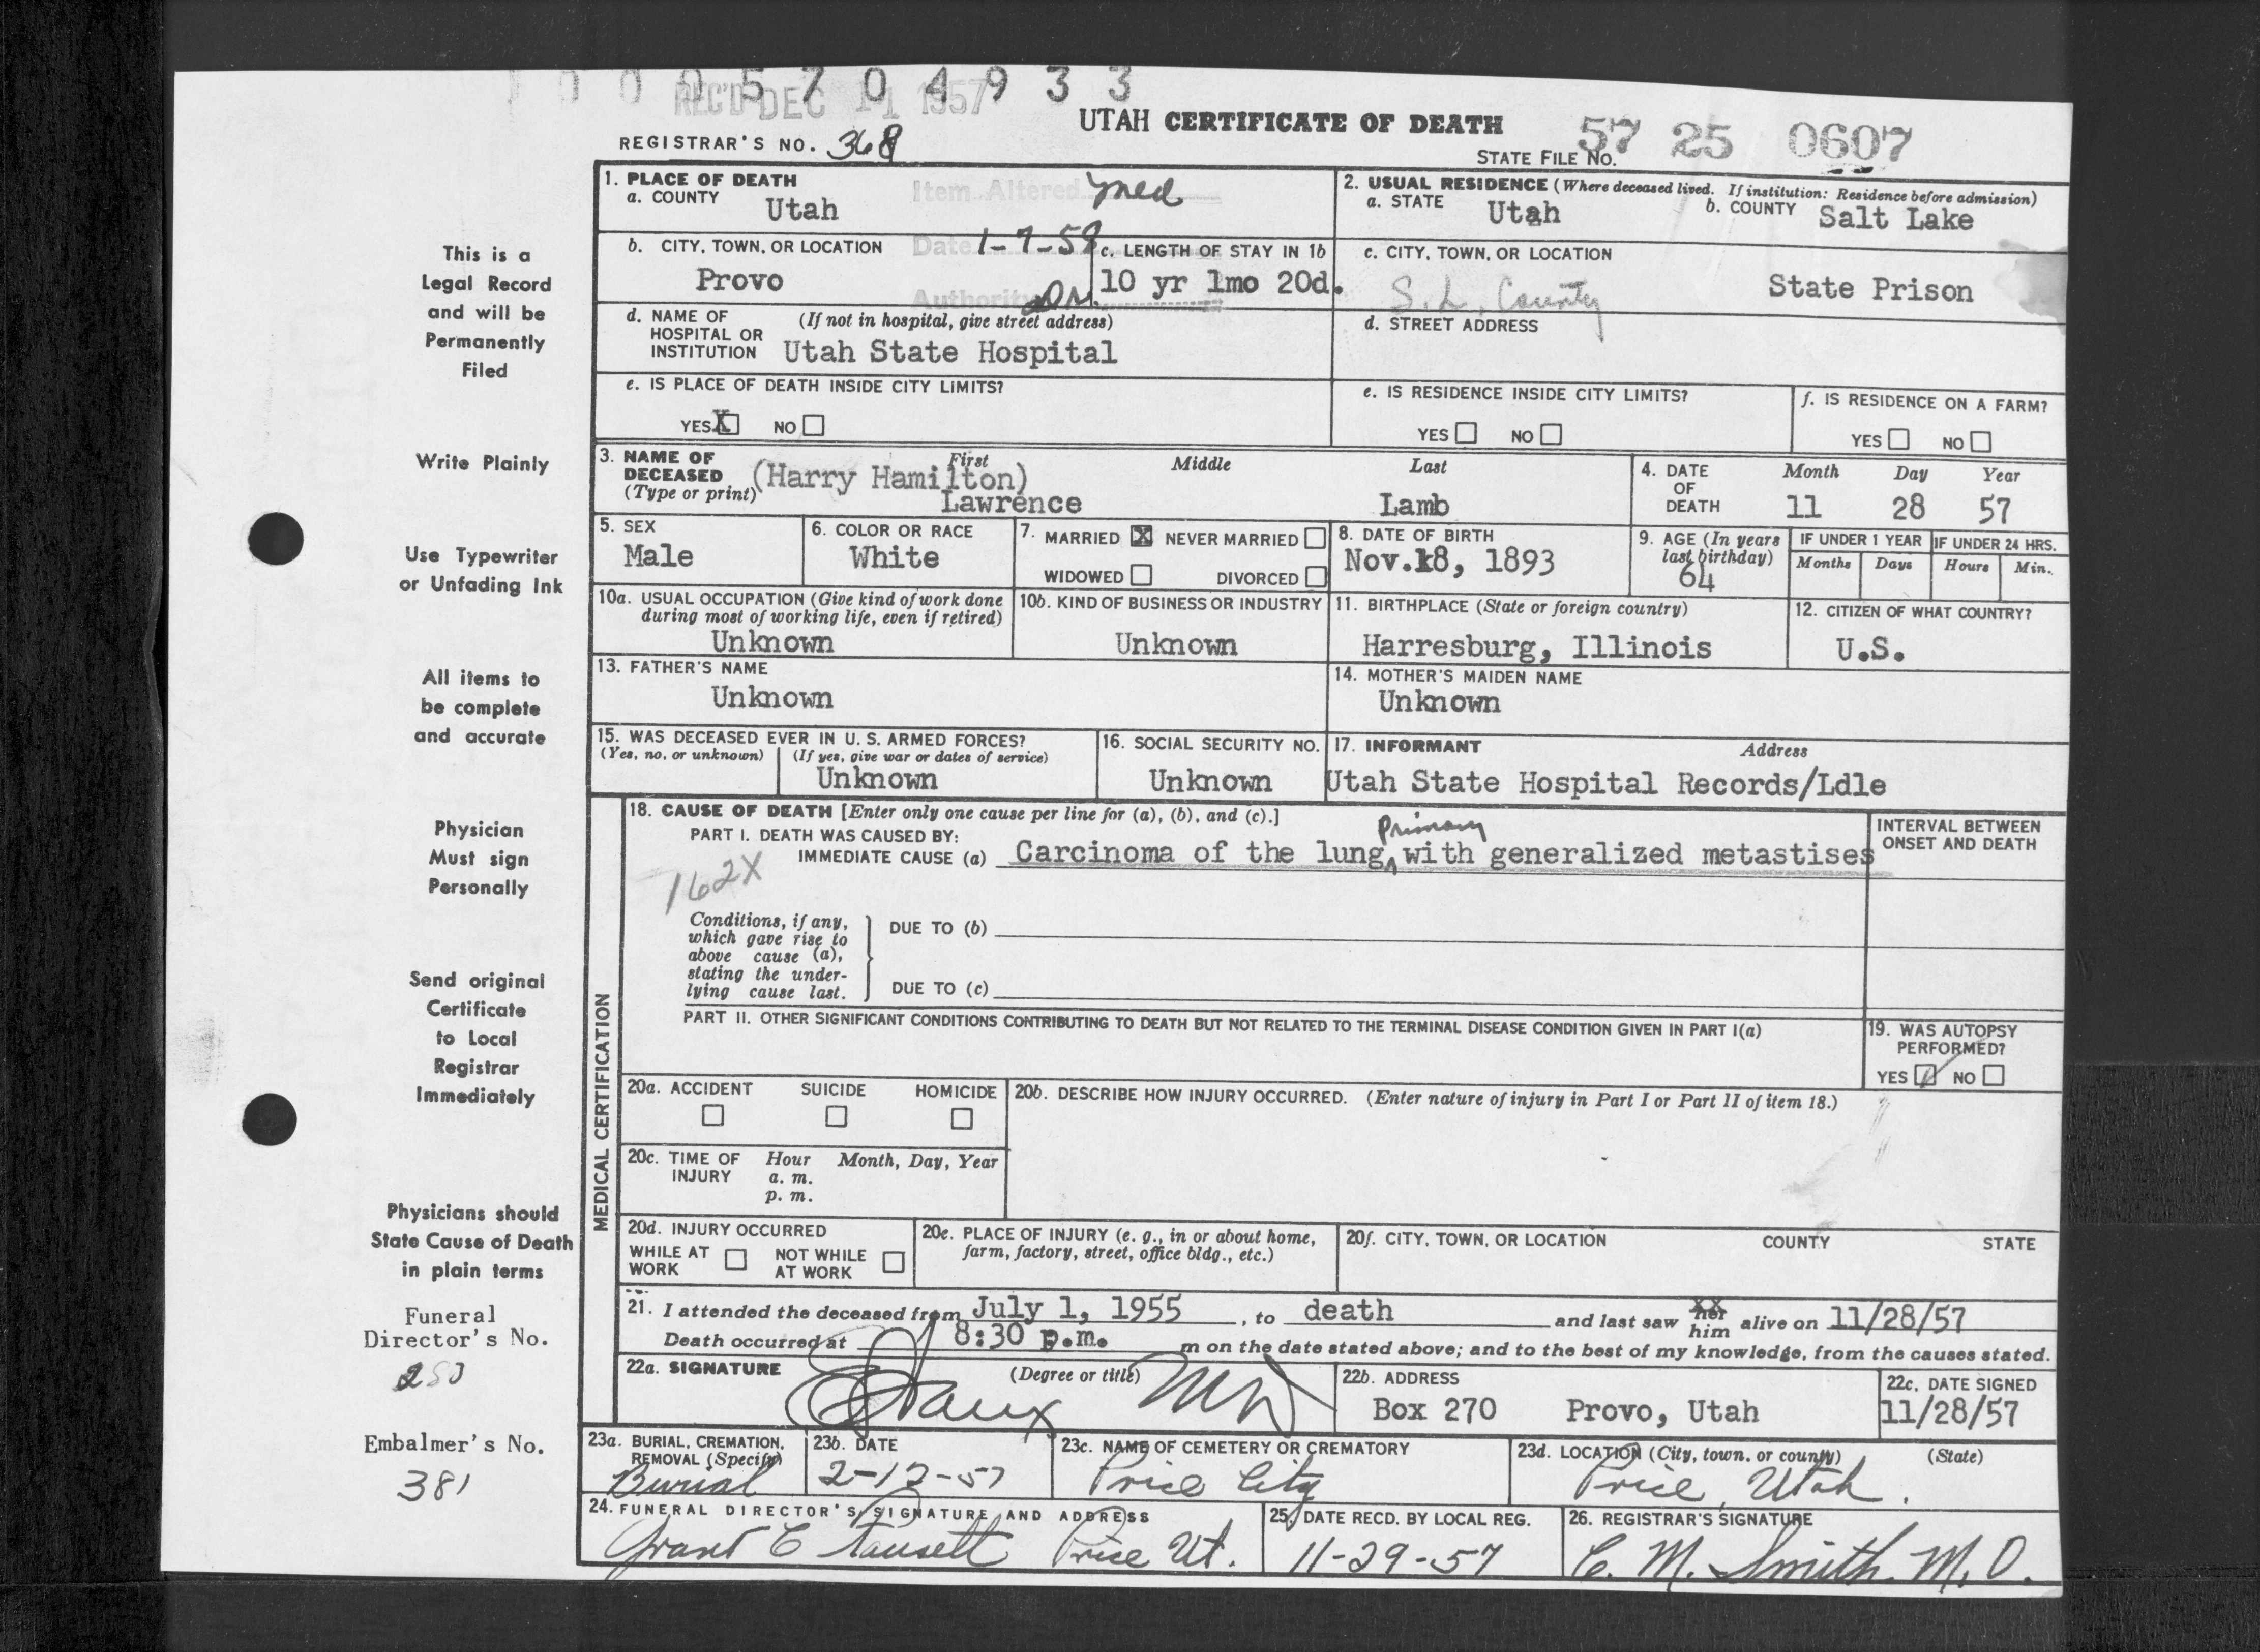 0 0 0 5 7 0 4 9 3 3
REC'D DEC 11 1957
UTAH CERTIFICATE OF DEATH
REGISTRAR'S NO. 368
STATE FILE NO. 57 25 0607
1. PLACE OF DEATH
a. COUNTY Utah
Item Altered med
2. USUAL RESIDENCE (Where deceased lived. If institution: Residence before admission)
a. STATE Utah b. COUNTY Salt Lake
This is a
Legal Record
and will be
Permanently
Filed
b. CITY, TOWN, OR LOCATION
Provo
Date 1-7-58
Authority Dr.
c. LENGTH OF STAY IN 1b
10 yr 1mo 20d.
c. CITY, TOWN, OR LOCATION
S. L. County State Prison
d. NAME OF HOSPITAL OR INSTITUTION (If not in hospital, give street address)
Utah State Hospital
d. STREET ADDRESS
e. IS PLACE OF DEATH INSIDE CITY LIMITS?
YES X NO
e. IS RESIDENCE INSIDE CITY LIMITS?
YES NO
f. IS RESIDENCE ON A FARM?
YES NO
Write Plainly
3. NAME OF DECEASED (Type or print)
First Middle Last
(Harry Hamilton)
Lawrence Lamb
4. DATE OF DEATH
Month Day Year
11 28 57
Use Typewriter
or Unfading Ink
5. SEX
Male
6. COLOR OR RACE
White
7. MARRIED X NEVER MARRIED
WIDOWED DIVORCED
8. DATE OF BIRTH
Nov. 18, 1893
9. AGE (In years last birthday)
64
IF UNDER 1 YEAR
Months Days
IF UNDER 24 HRS.
Hours Min.
10a. USUAL OCCUPATION (Give kind of work done during most of working life, even if retired)
Unknown
10b. KIND OF BUSINESS OR INDUSTRY
Unknown
11. BIRTHPLACE (State or foreign country)
Harresburg, Illinois
12. CITIZEN OF WHAT COUNTRY?
U.S.
All items to
be complete
and accurate
13. FATHER'S NAME
Unknown
14. MOTHER'S MAIDEN NAME
Unknown
15. WAS DECEASED EVER IN U. S. ARMED FORCES?
(Yes, no, or unknown) (If yes, give war or dates of service)
Unknown
16. SOCIAL SECURITY NO.
Unknown
17. INFORMANT Address
Utah State Hospital Records/Ldle
Physician
Must sign
Personally
MEDICAL CERTIFICATION
18. CAUSE OF DEATH [Enter only one cause per line for (a), (b), and (c).]
PART I. DEATH WAS CAUSED BY:
primary
IMMEDIATE CAUSE (a) Carcinoma of the lung, with generalized metastises
INTERVAL BETWEEN ONSET AND DEATH
162X
Conditions, if any,
which gave rise to
above cause (a),
stating the under-
lying cause last.
DUE TO (b)
DUE TO (c)
Send original
Certificate
to Local
Registrar
Immediately
PART II. OTHER SIGNIFICANT CONDITIONS CONTRIBUTING TO DEATH BUT NOT RELATED TO THE TERMINAL DISEASE CONDITION GIVEN IN PART I(a)
19. WAS AUTOPSY PERFORMED?
YES ✓ NO
20a. ACCIDENT SUICIDE HOMICIDE
20b. DESCRIBE HOW INJURY OCCURRED. (Enter nature of injury in Part I or Part II of item 18.)
20c. TIME OF INJURY Hour Month, Day, Year
a. m.
p. m.
Physicians should
State Cause of Death
in plain terms
20d. INJURY OCCURRED
WHILE AT WORK NOT WHILE AT WORK
20e. PLACE OF INJURY (e. g., in or about home, farm, factory, street, office bldg., etc.)
20f. CITY, TOWN, OR LOCATION COUNTY STATE
21. I attended the deceased from July 1, 1955, to death and last saw her him alive on 11/28/57
Death occurred at 8:30 p.m. m on the date stated above; and to the best of my knowledge, from the causes stated.
Funeral
Director's No.
250
22a. SIGNATURE (Degree or title)
MD
22b. ADDRESS
Box 270 Provo, Utah
22c. DATE SIGNED
11/28/57
Embalmer's No.
381
23a. BURIAL, CREMATION, REMOVAL (Specify)
Burial
23b. DATE
2-12-57
23c. NAME OF CEMETERY OR CREMATORY
Price City
23d. LOCATION (City, town, or county) (State)
Price, Utah.
24. FUNERAL DIRECTOR'S SIGNATURE AND ADDRESS
Grant C Fausett Price Ut.
25. DATE RECD. BY LOCAL REG.
11-29-57
26. REGISTRAR'S SIGNATURE
C. M. Smith. M.D.